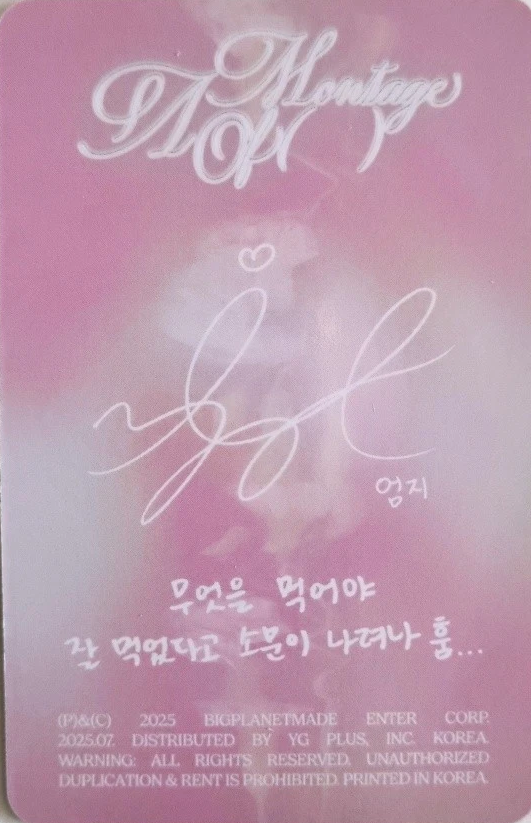 A Montage
Of( )
엄지
무엇을 먹어야
잘 먹었다고 소문이 나려나 훔...
(P)&(C) 2025 BIGPLANETMADE ENTER CORP.
2025.07. DISTRIBUTED BY YG PLUS, INC. KOREA.
WARNING: ALL RIGHTS RESERVED. UNAUTHORIZED
DUPLICATION & RENT IS PROHIBITED. PRINTED IN KOREA.